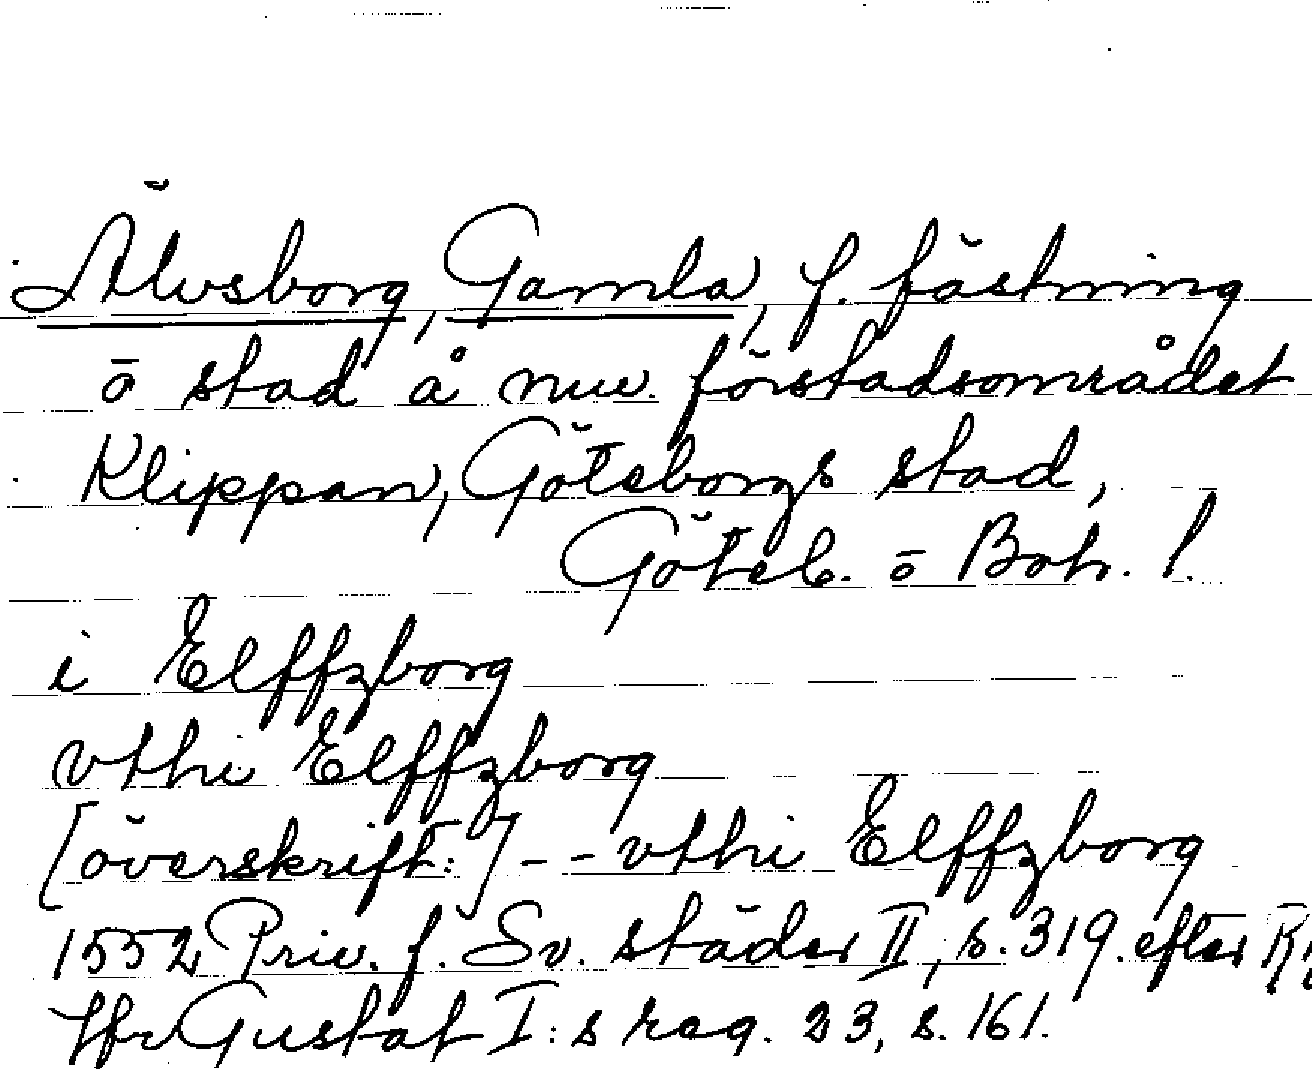 Älvsborg, Gamla, f. fästning
ō stad å nuv. förstadsområdet
Klippan, Göteborgs stad,
Göteb. ō Boh. l.
i Elffzborg
vthi Elffzborg
[överskrift:] - - vthi Elffzborg
1552 Priv. f. Sv. städer II, s. 319. efter RR
Jfr Gustaf I:s reg. 23, s. 161.